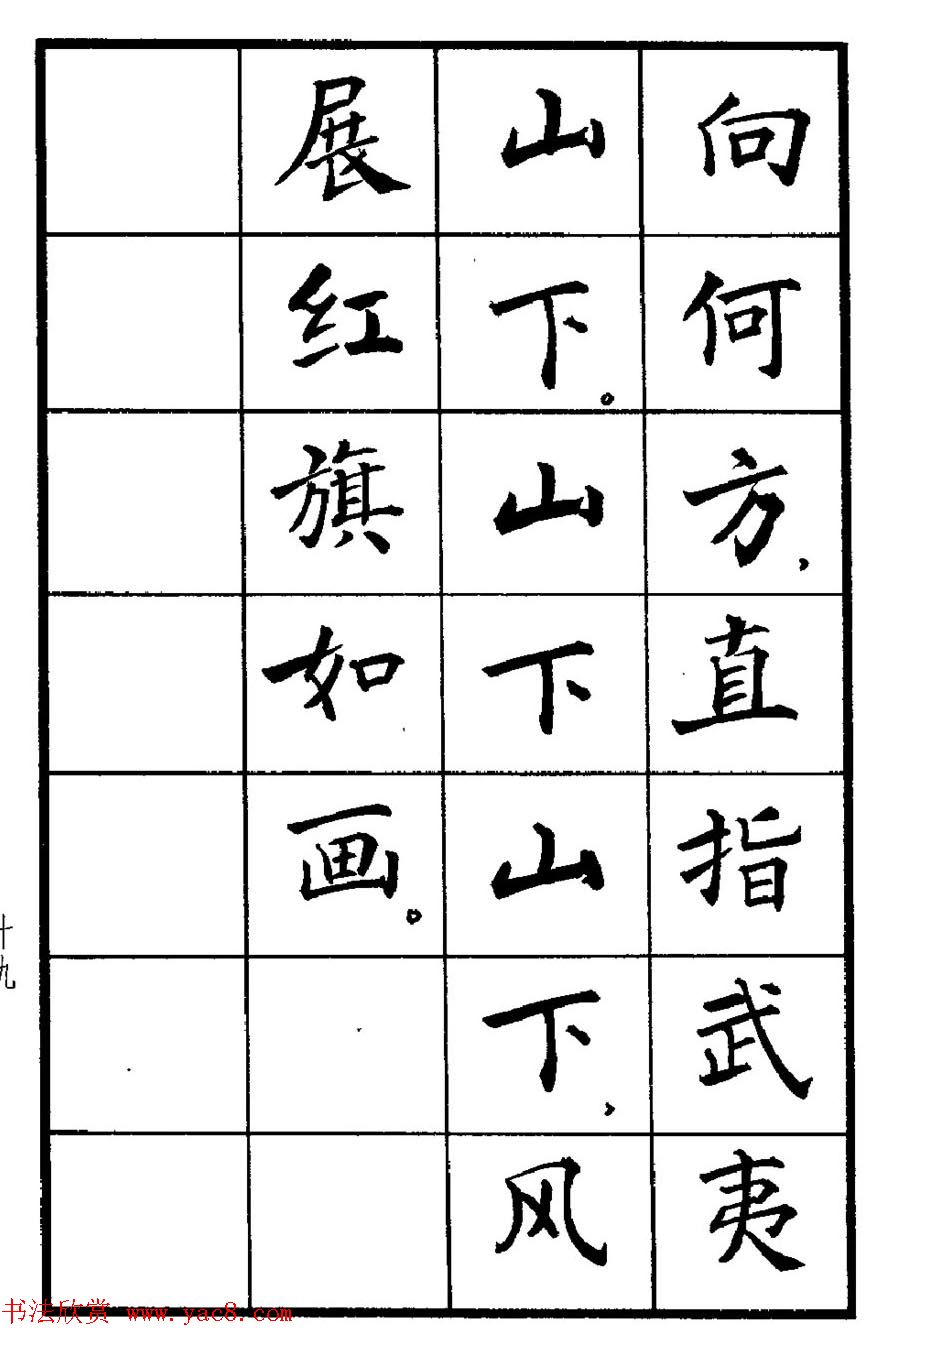 向何方，直指武夷
山下。山下山下，风
展红旗如画。
十九
书法欣赏 www.yac8.com